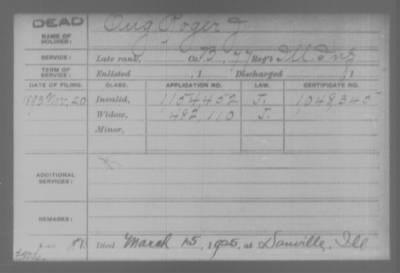 DEAD
NAME OF SOLDIER: Roger J
SERVICE: Late rank, Co. B, 77 Reg't Ill. Inf
TERM OF SERVICE: Enlisted , 1 Discharged , 1
DATE OF FILING. CLASS. APPLICATION NO. LAW. CERTIFICATE NO.
1893 Nov. 20 Invalid, 1154,452 J. 1048,345
Widow, 492,110 J.
Minor,
ADDITIONAL SERVICES:
REMARKS:
Died March 15, 1905, at Danville, Ill